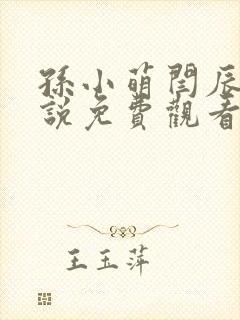 孫小萌閆辰
說免費觀看
王玉萍